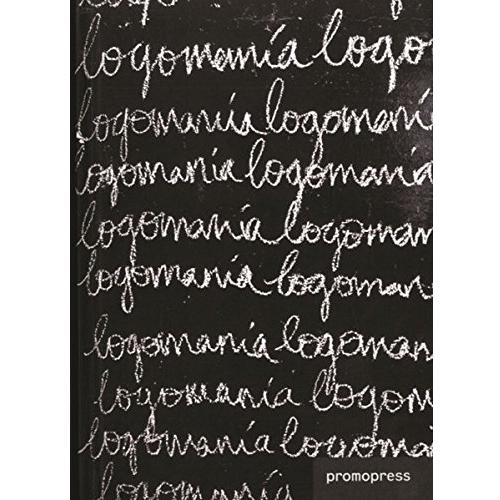 logomanía logo
logomanía logomaní
logomanía logomanía
logomanía logoman
logomanía logoman
logomanía logoman
logomanía logoman
logomanía logoma
logomanía
promopress